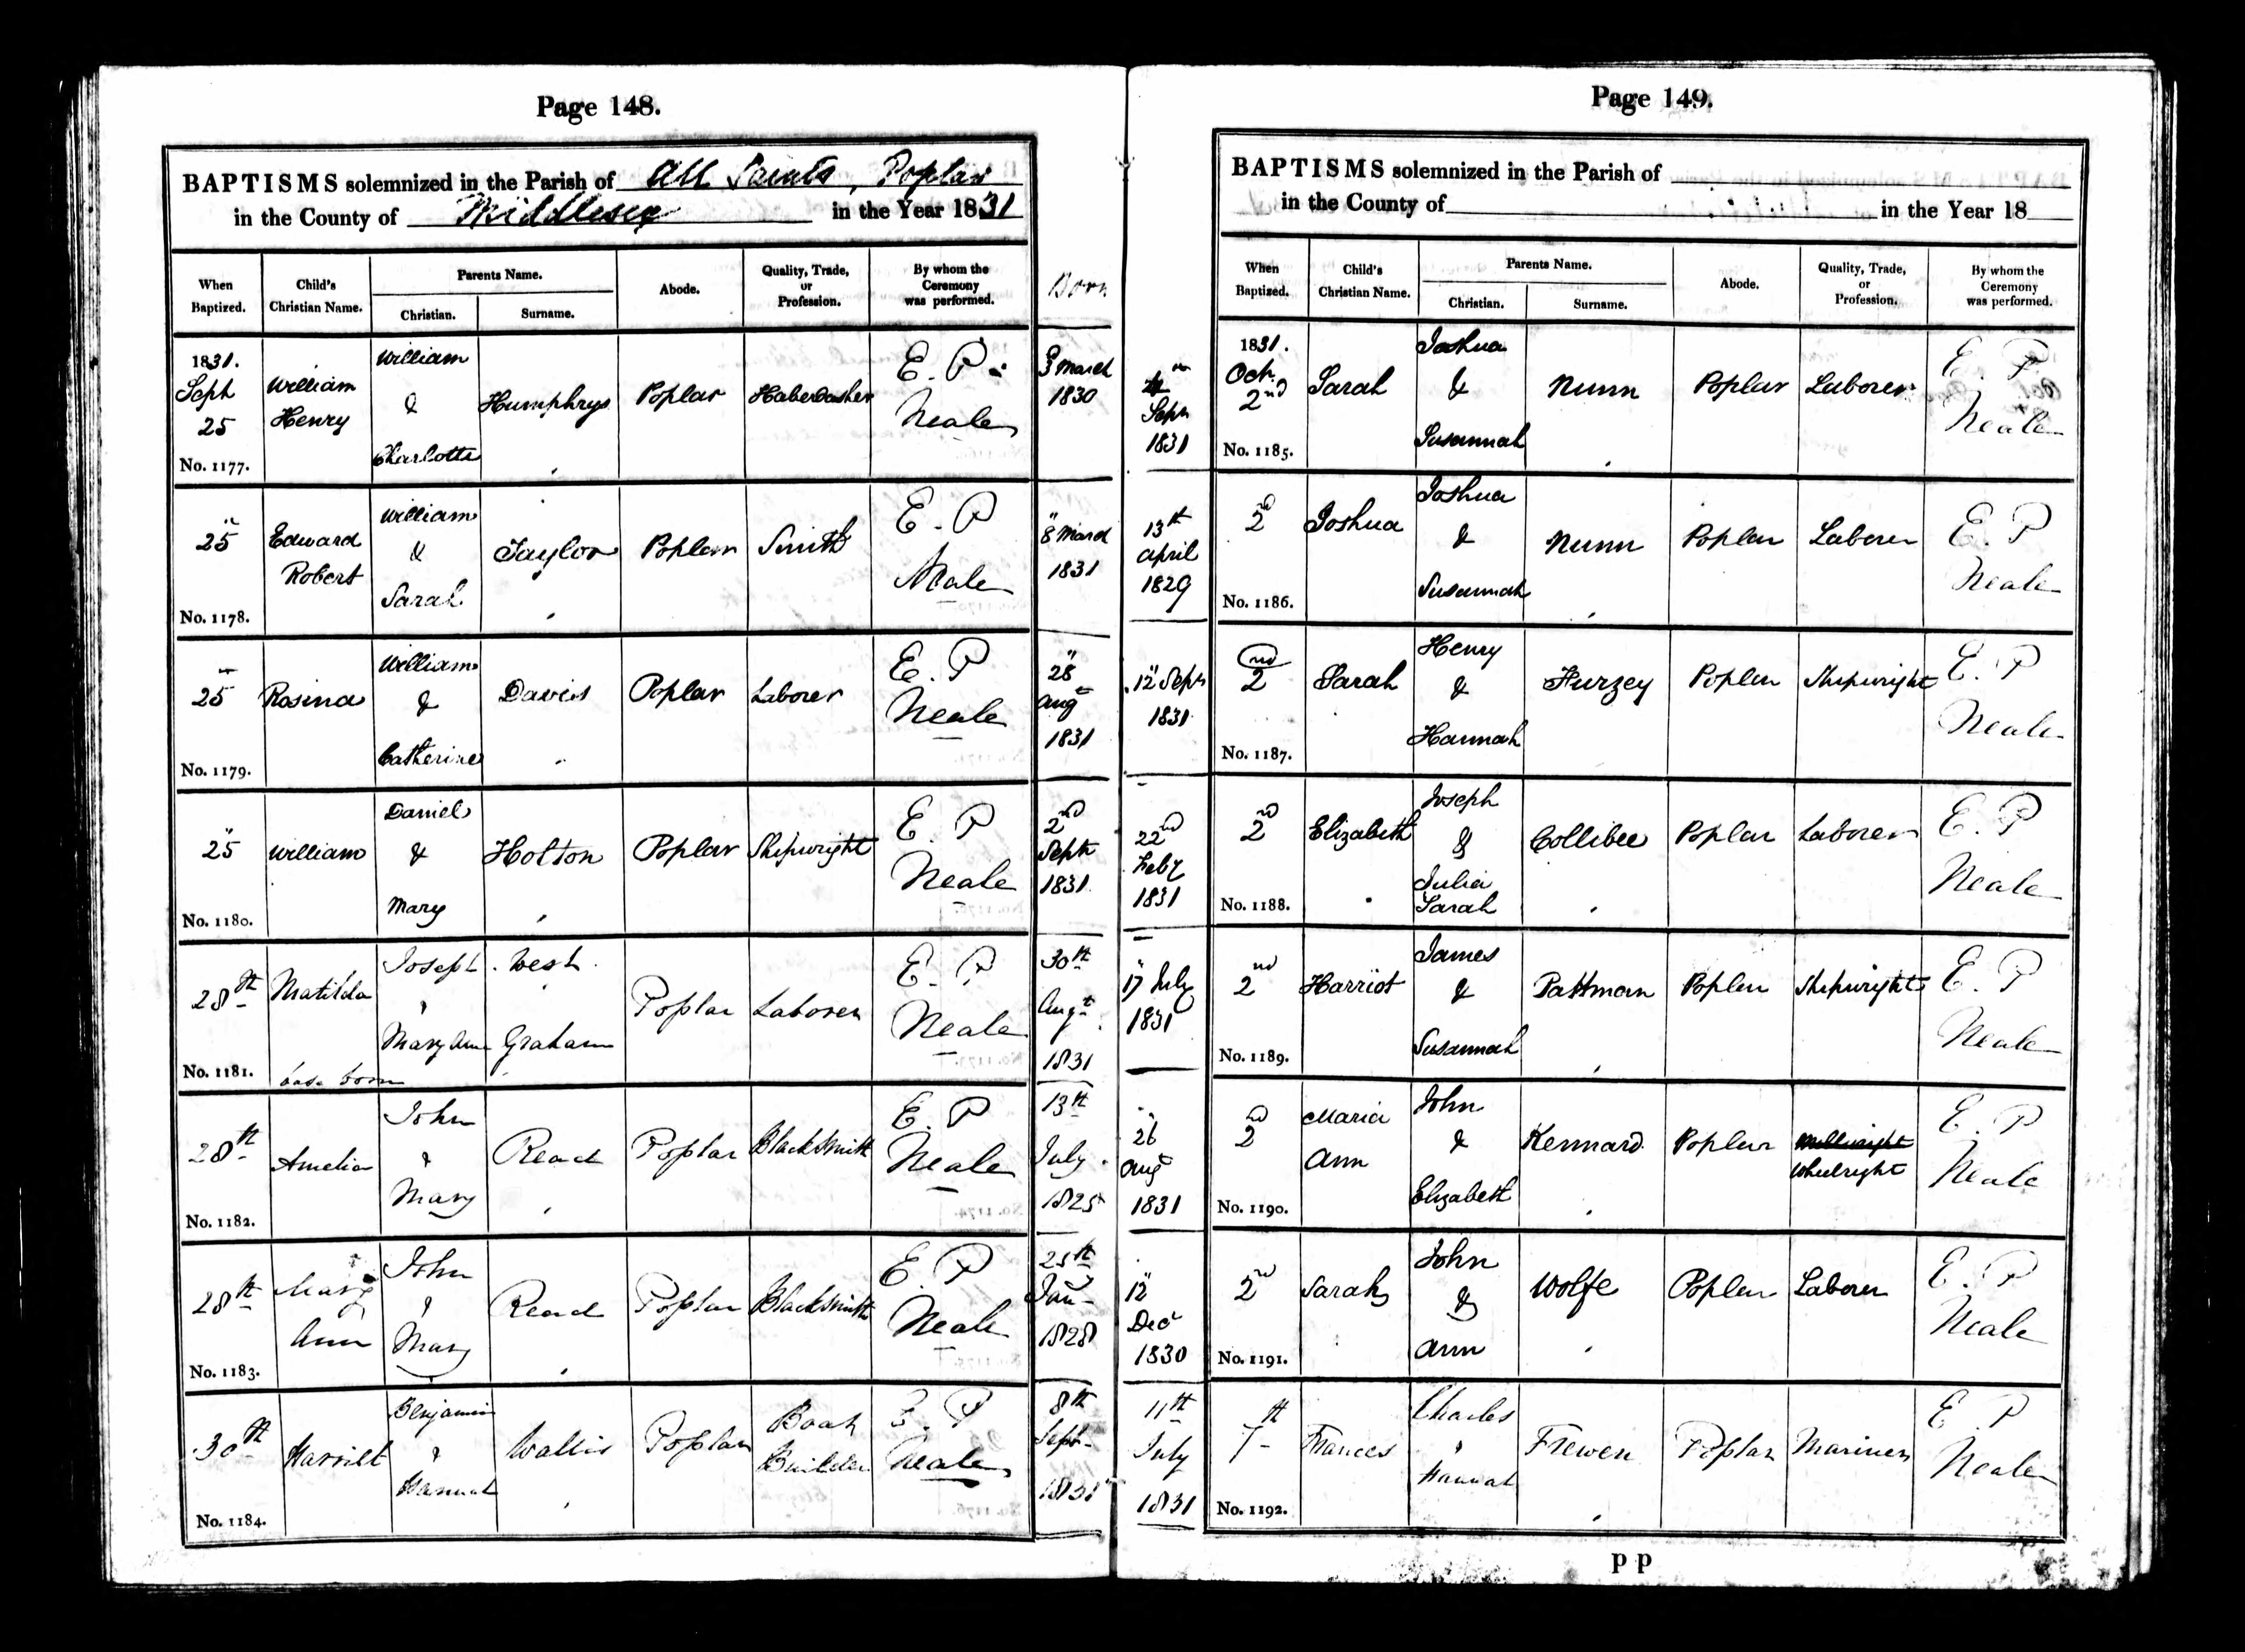 Page 148.
BAPTISMS solemnized in the Parish of All Saints, Poplar
in the County of Middlesex in the Year 1831
When Baptized.
Child's Christian Name.
Parents Name.
Christian.
Surname.
Abode.
Quality, Trade, or Profession.
By whom the Ceremony was performed.
Born
1831. Sept 25
No. 1177.
William Henry
William & Charlotte
Humphrys
Poplar
Haberdasher
E. P. Neale
3 March 1830
25
No. 1178.
Edward Robert
William & Sarah
Taylor
Poplar
Smith
E. P Neale
8 March 1831
25
No. 1179.
Rosina
William & Catherine
Davis
Poplar
Laborer
E. P Neale
28 Augt 1831
25
No. 1180.
William
Daniel & Mary
Holton
Poplar
Shipwright
E. P Neale
2nd Septr 1831
28th
No. 1181.
Matilda
base born
Joseph & Mary Ann
West
Graham
Poplar
Laborer
E. P Neale
30th Augt 1831
28th
No. 1182.
Amelia
John & Mary
Read
Poplar
Blacksmith
E. P Neale
13th July 1825
28th
No. 1183.
Mary Ann
John & Mary
Read
Poplar
Blacksmith
E. P Neale
25th Jan 1828
30th
No. 1184.
Harriet
Benjamin & Hannah
Wallis
Poplar
Boat Builder
E. P Neale
8th Sept 1831
Page 149.
BAPTISMS solemnized in the Parish of
in the County of in the Year 18
When Baptized.
Child's Christian Name.
Parents Name.
Christian.
Surname.
Abode.
Quality, Trade, or Profession.
By whom the Ceremony was performed.
Sepr 1831
1831. Oct. 2nd
No. 1185.
Sarah
Joshua & Susannah
Nunn
Poplar
Laborer
E. P. Neale
13th April 1829
2nd
No. 1186.
Joshua
Joshua & Susannah
Nunn
Poplar
Laborer
E. P Neale
12 Sepr 1831
2nd
No. 1187.
Sarah
Henry & Hannah
Furzey
Poplar
Shipwright
E. P Neale
22nd Feby 1831
2nd
No. 1188.
Elizabeth
Joseph & Julia Sarah
Collibee
Poplar
Laborer
E. P Neale
17 July 1831
2nd
No. 1189.
Harriot
James & Susannah
Pattman
Poplar
Shipwright
E. P Neale
26 Augt 1831
2nd
No. 1190.
Maria Ann
John & Elizabeth
Kennard
Poplar
Wheelright
E. P Neale
12 Decr 1830
2nd
No. 1191.
Sarah
John & Ann
Wolfe
Poplar
Laborer
E. P Neale
11th July 1831
7th
No. 1192.
Frances
Charles & Hannah
Frewen
Poplar
Mariner
E. P Neale
P P